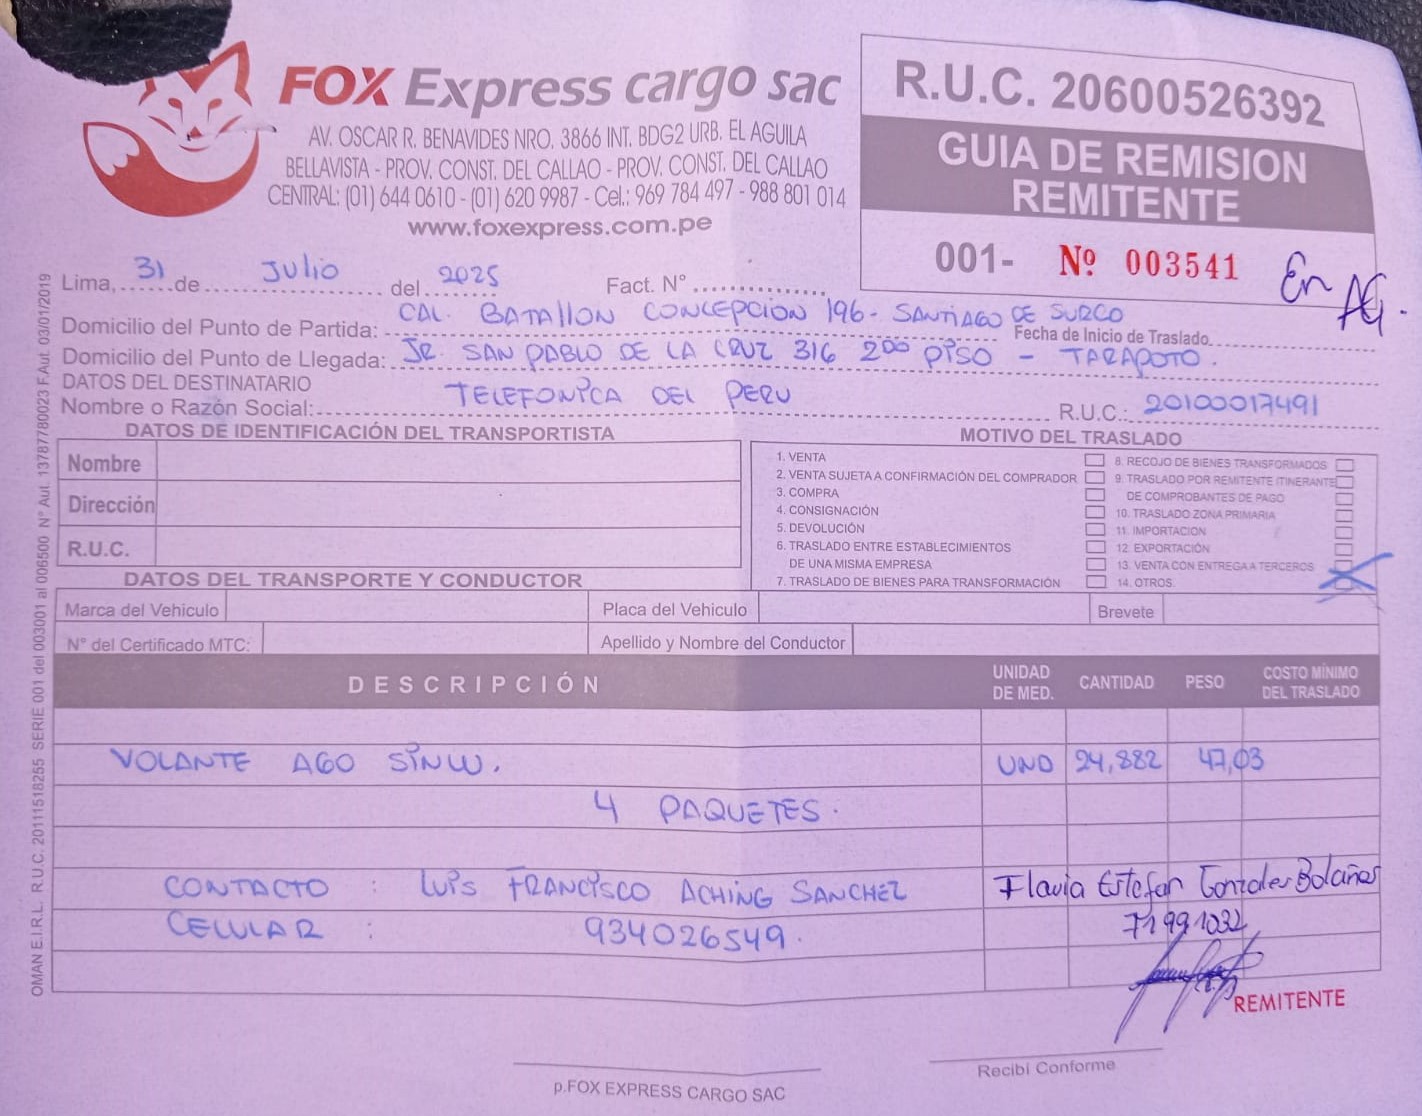 FOX Express cargo sac
AV. OSCAR R. BENAVIDES NRO. 3866 INT. BDG2 URB. EL AGUILA
BELLAVISTA - PROV. CONST. DEL CALLAO - PROV. CONST. DEL CALLAO
CENTRAL: (01) 644 0610 - (01) 620 9987 - Cel.: 969 784 497 - 988 801 014
www.foxexpress.com.pe
R.U.C. 20600526392
GUIA DE REMISION
REMITENTE
001- Nº 003541
En AG.
Lima, 31 de Julio del 2025 Fact. N°
Domicilio del Punto de Partida: CAL. BATALLON CONCEPCION 196 - SANTIAGO DE SURCO Fecha de Inicio de Traslado
Domicilio del Punto de Llegada: JR. SAN PABLO DE LA CRUZ 316 2DO PISO - TARAPOTO.
DATOS DEL DESTINATARIO
Nombre o Razón Social: TELEFONICA DEL PERU R.U.C.: 20100017491
DATOS DE IDENTIFICACIÓN DEL TRANSPORTISTA
Nombre
Dirección
R.U.C.
MOTIVO DEL TRASLADO
1. VENTA
2. VENTA SUJETA A CONFIRMACIÓN DEL COMPRADOR
3. COMPRA
4. CONSIGNACIÓN
5. DEVOLUCIÓN
6. TRASLADO ENTRE ESTABLECIMIENTOS
DE UNA MISMA EMPRESA
7. TRASLADO DE BIENES PARA TRANSFORMACIÓN
8. RECOJO DE BIENES TRANSFORMADOS
9. TRASLADO POR REMITENTE ITINERANTE
DE COMPROBANTES DE PAGO
10. TRASLADO ZONA PRIMARIA
11. IMPORTACION
12. EXPORTACIÓN
13. VENTA CON ENTREGA A TERCEROS
14. OTROS
DATOS DEL TRANSPORTE Y CONDUCTOR
Marca del Vehiculo Placa del Vehiculo Brevete
N° del Certificado MTC: Apellido y Nombre del Conductor
DESCRIPCIÓN UNIDAD DE MED. CANTIDAD PESO COSTO MÍNIMO DEL TRASLADO
VOLANTE AGO SINW. UND 24,882 47,03
4 PAQUETES.
CONTACTO : LUIS FRANCISCO ACHING SANCHEZ Flavia Estefan Gonzales Bolaños
CELULAR : 934026549. 71991032
REMITENTE
p.FOX EXPRESS CARGO SAC
Recibí Conforme
OMAN E.I.R.L. R.U.C. 20111518255 SERIE 001 del 003001 al 006500 N° Aut. 13787780023 F.Aut. 03/01/2019